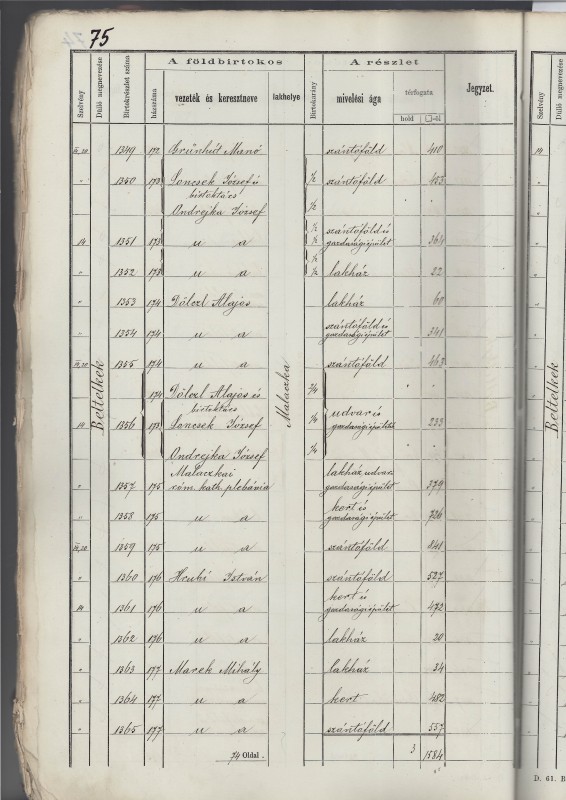 75
A földbirtokos
A részlet
Jegyzet.
Szelvény
Dülő megnevezése
Birtokrészlet száma
házszáma
vezeték és keresztneve
lakhelye
Birtokarány
mivelési ága
térfogata
hold
□-öl
1349 172 Grünhut Manó szántóföld 410
" 1350 173 Loncsek József és 1/2 szántóföld 423
birtoktárs
Ondrejka József 1/2
14 1351 173 u a 1/2 szántóföld és
1/2 gazdasági épület 364
1/2
" 1352 173 u a 1/2 lakház 22
" 1353 174 Dölczl Alajos lakház 60
" 1354 174 u a szántóföld és
gazdasági épület 341
1355 174 u a szántóföld 463
Beltelkek
Malaczka
174 Dölczl Alajos és 2/4
birtoktárs
14 1356 173 Loncsek József 1/4 udvar és
gazdasági épület 233
Ondrejka József 1/4
Malaczkai
" 1357 175 róm. kath. plebánia lakház udvar
gazdasági épület 379
" 1358 175 u a kert és
gazdasági épület 726
1359 175 u a szántóföld 841
" 1360 176 Hrubi István szántóföld 527
14 1361 176 u a kert és
gazdasági épület 472
" 1362 176 u a lakház 20
" 1363 177 Marek Mihály lakház 34
" 1364 177 u a kert 482
" 1365 177 u a szántóföld 557
74 Oldal. 3 1584
Szelvény
Dülő megnevezése
14
Beltelkek
D. 61. B